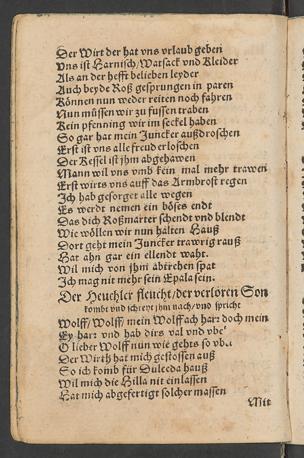 Der Wirt der hat vns vrlaub geben
Vns ist Harnisch/Watsack vnd Kleider
Als an der hefft belieben leyder
Auch beyde Roß gesprungen in paren
Können nun weder reiten noch fahren
Nun müssen wir zu fussen traben
Kein pfenning wir im seckel haben
So gar hat mein Juncker außdroschen
Erst ist vns alle freud erloschen
Der Kessel ist jhm abgehawen
Mann wil vns vmb kein mal mehr trawen
Erst wirts vns auff das Armbrost regen
Ich hab gesorget alle wegen
Es werdt nemen ein böses endt
Das dich Roßmarter schendt vnd blendt
Wie wöllen wir nun halten Hauß
Dort geht mein Juncker trawrig rauß
Hat ahn gar ein ellendt waht.
Wil mich von jhm abziehen spat
Ich mag nit mehr sein Epala sein.
Der Heuchler fleucht/der verloren Son
kombt vnd schreyt jhm nach/vnd spricht
Wolff/Wolff/mein Wolff ach harz doch mein
Ey harz vnd hab dirs val vnd vbel
O lieber Wolff nun wie gehts so vbel
Der Wirth hat mich gestossen auß
So ich komb für Dulceda hauß
Wil mich die Hilla nit einlassen
Hat mich abgefertigt solcher massen
Mit